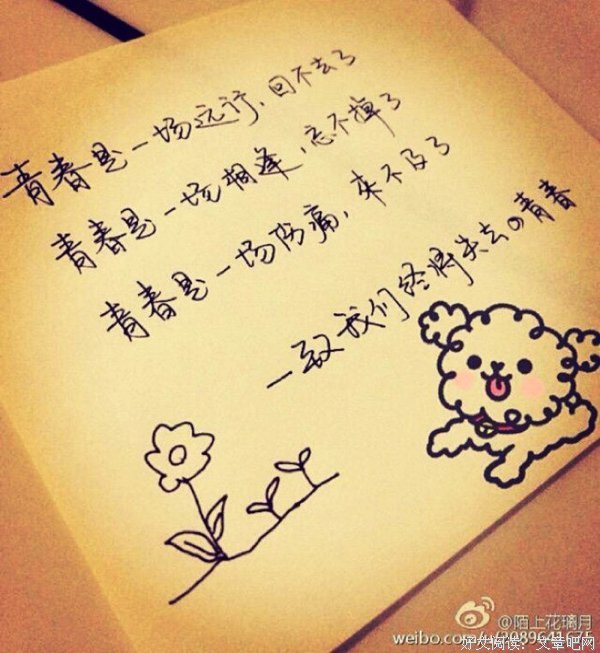 青春是一场远行，回不去了
青春是一场相逢，忘不掉了
青春是一场伤痛，来不及了
一致我们终将失去の青春
@陌上花璃月
weibo.com/
好文阅读：文章吧网